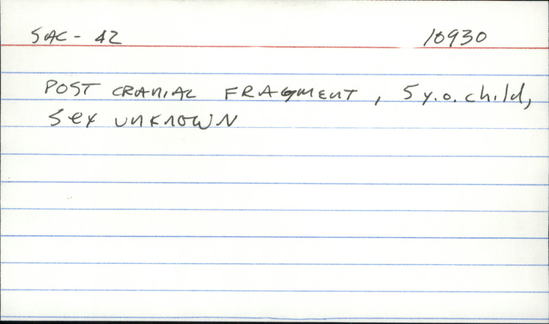 SAC - 42 10930
POST CRANIAL FRAGMENT, 5 y.o. child,
Sex UNKNOWN